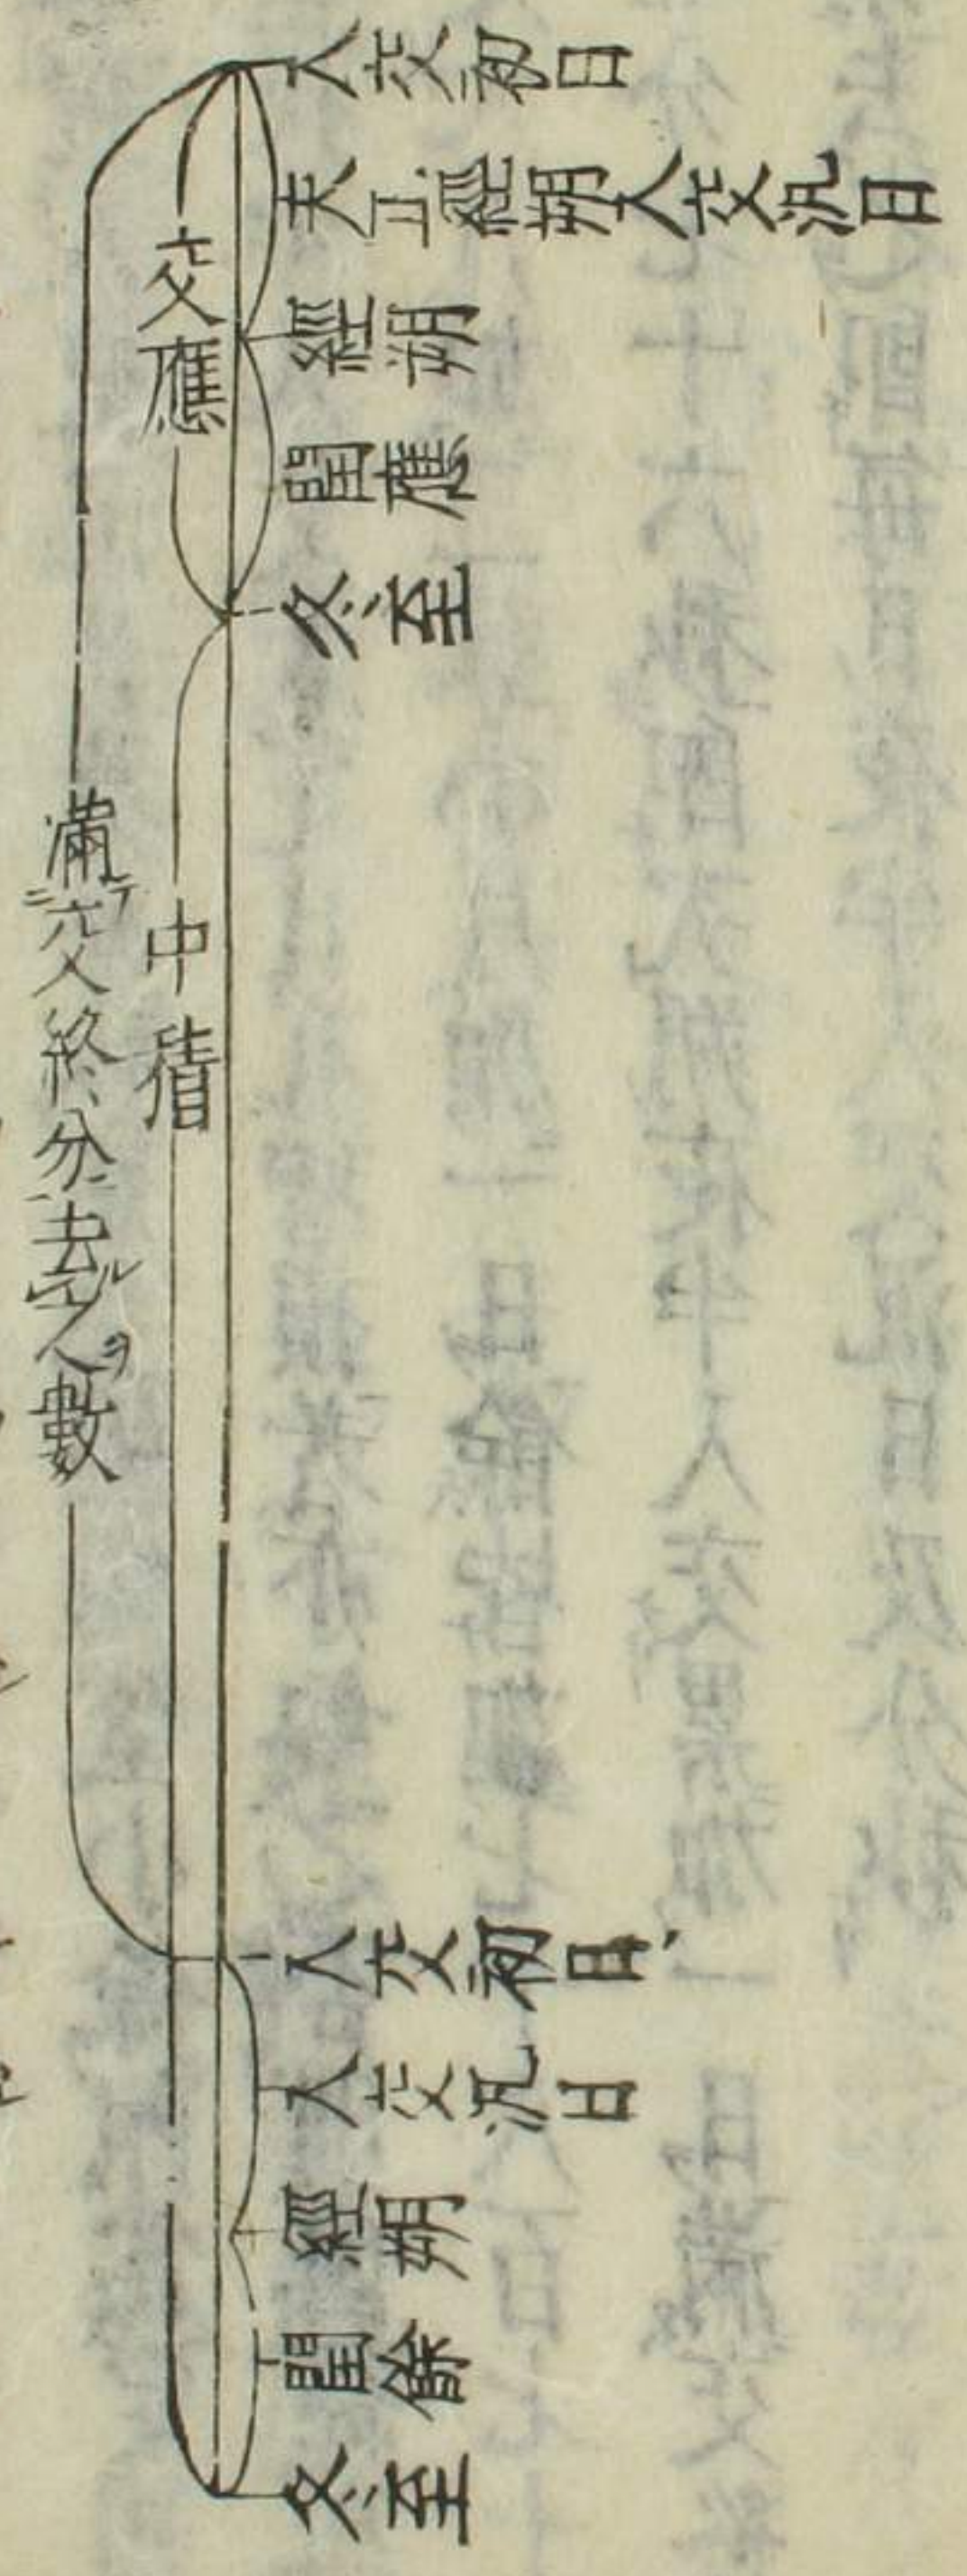 入交初日
天正經朔入交汎日
經朔
閏應
冬至
交應
中積
滿ニテ交終分ニ去ルレ之ヲ數
入交初日
入交汎日
經朔
閏餘
冬至